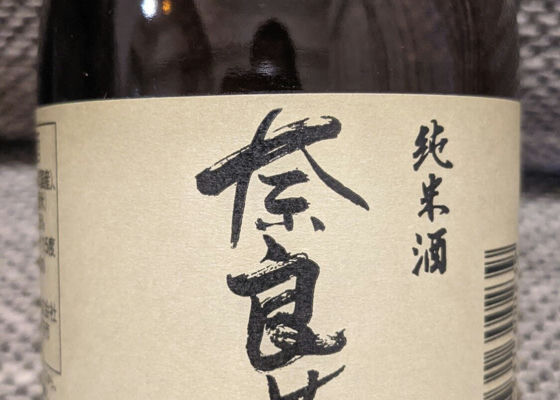 純米酒
奈良